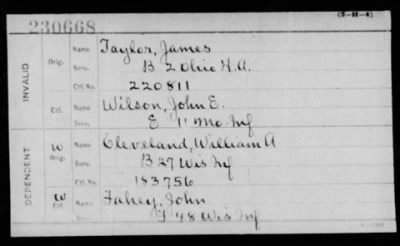 230668
(3-H-4)
INVALID
Orig.
Name Taylor, James
Serv. B 2 Ohio H.A.
Ctf. No. 220811
Ctf.
Name Wilson, John E.
Serv. E 11 Mo. Inf
DEPENDENT
W
Orig.
Name Cleveland, William A
Serv. B 27 Wis Inf
Ctf. No. 183756
W
Ctf.
Name Fahey, John
Serv. F 48 Wis Inf